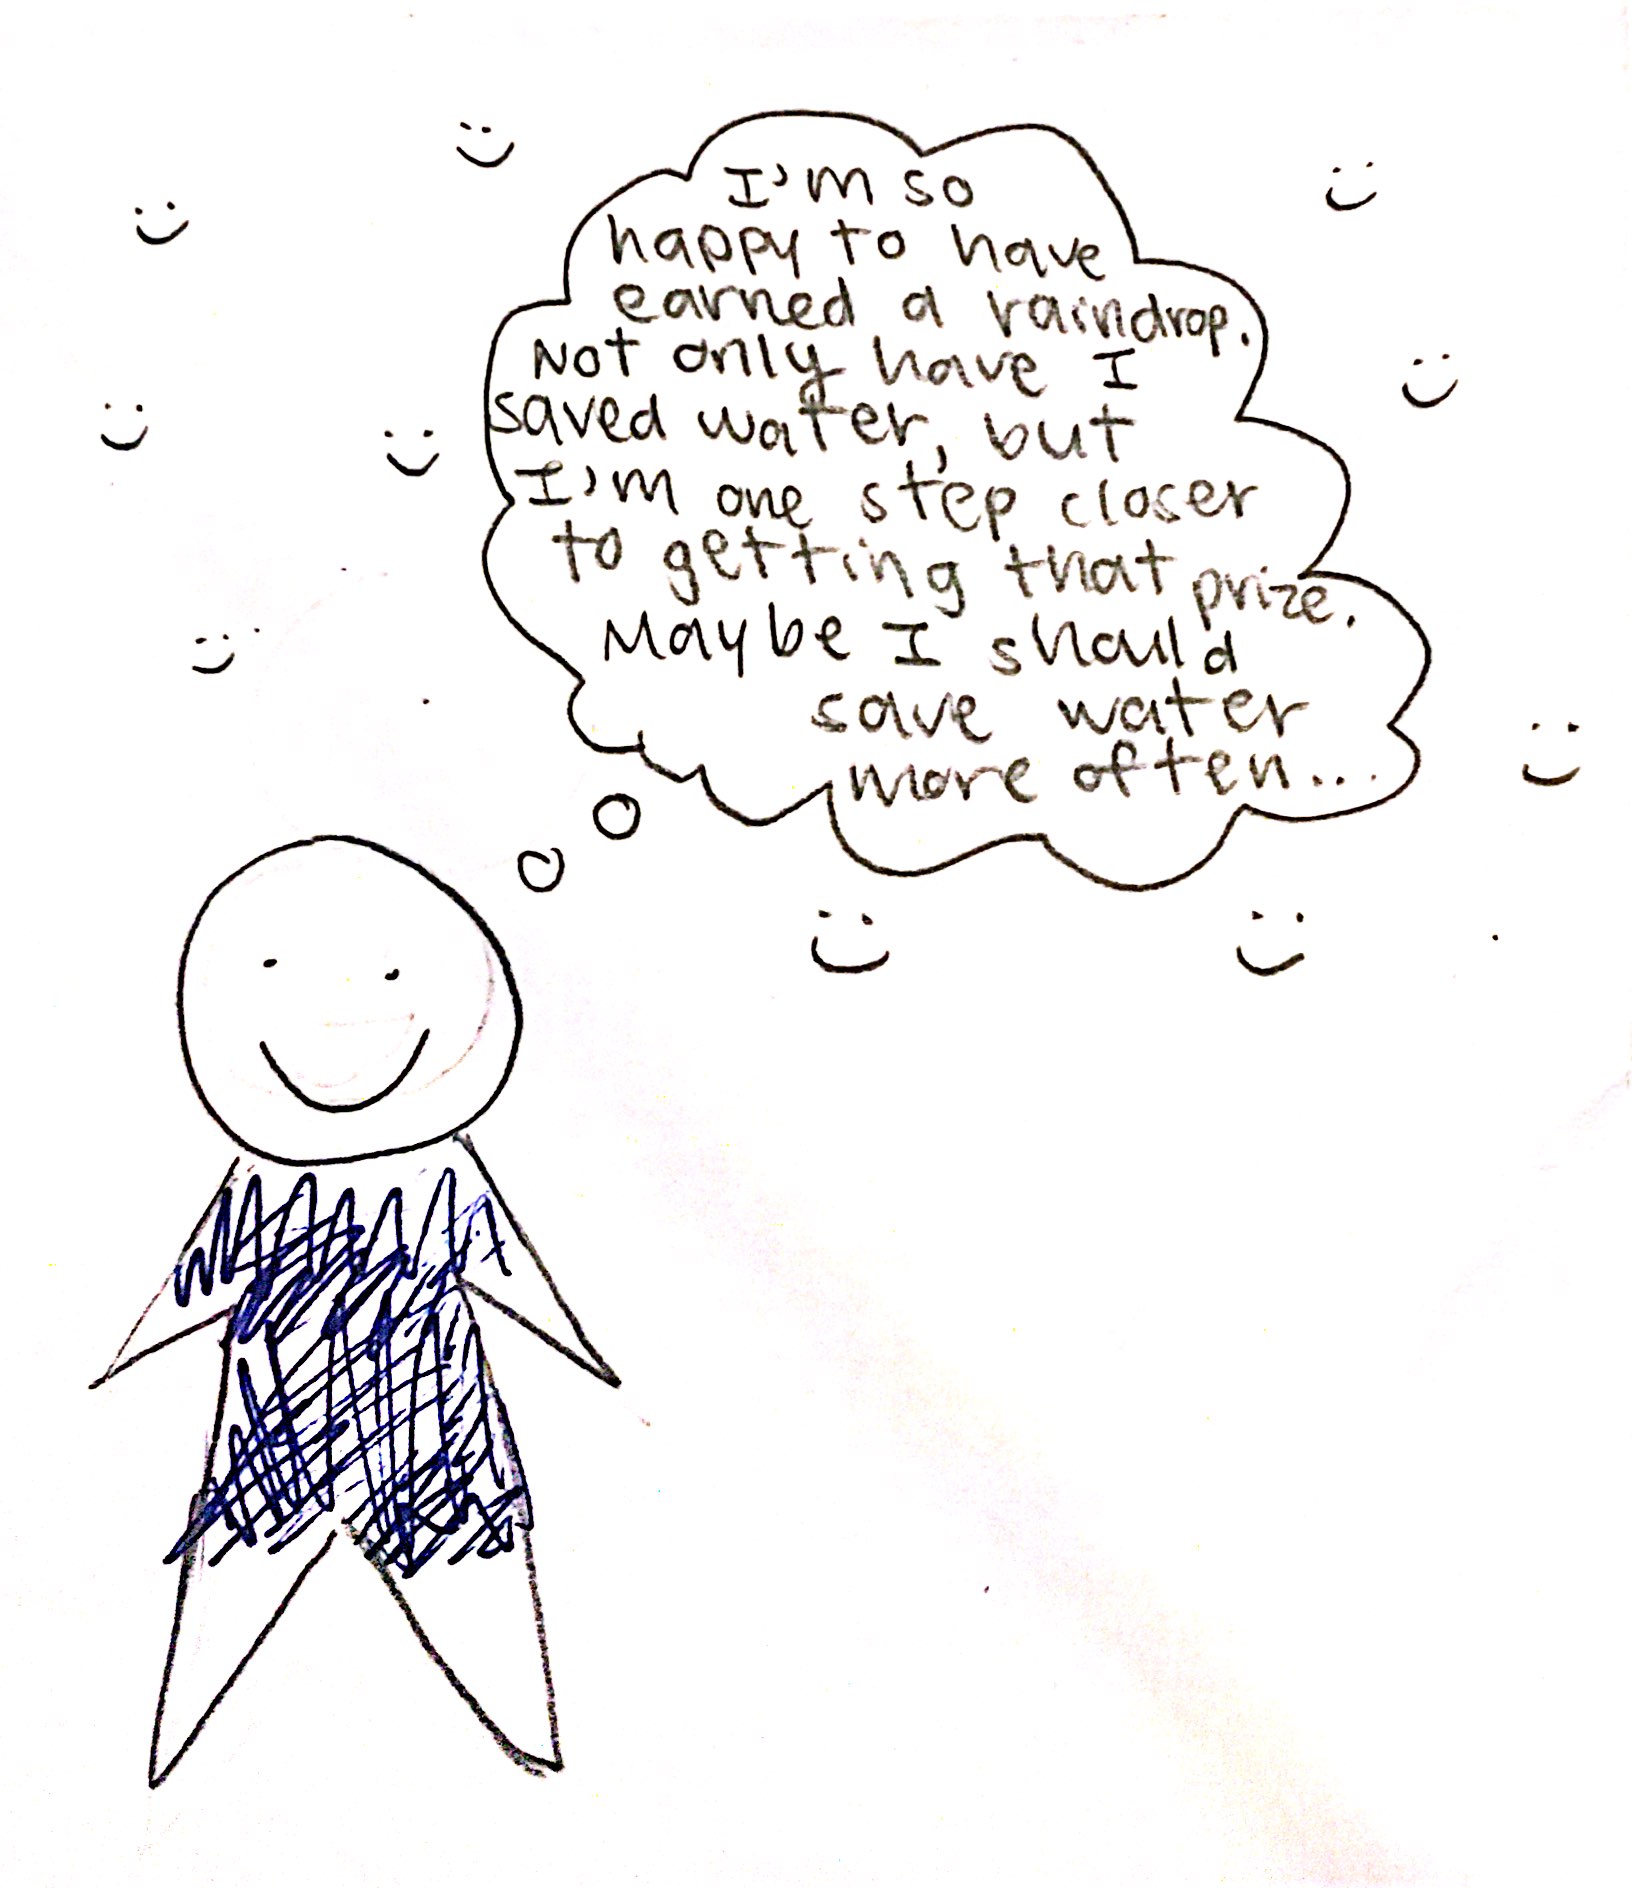 I'm so
happy to have
earned a raindrop.
Not only have I
saved water, but
I'm one step closer
to getting that prize.
Maybe I should
save water
more often...